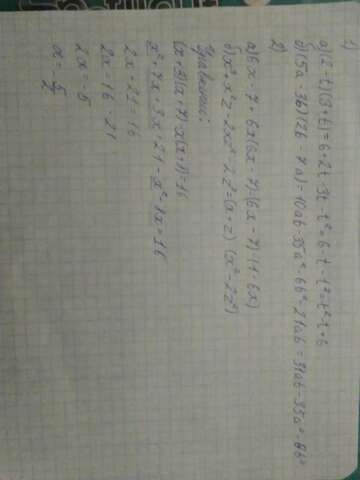 1)
а) (2-t)(3+t)=6+2t-3t-t²=6-t-t²=t²-t+6
б) (5a-3b)(2b-7a)=10ab-35a²-6b²-21ab=31ab-35a²-6b²
2)
а) 6x-7+6x(6x-7)=(6x-7)(1-6x)
Уравнение:
(x+3)(x+7)-x(x+8)=16
x²+7x+3x+21-x²-8x=16
2x+21=16
2x=16-21
2x=-5